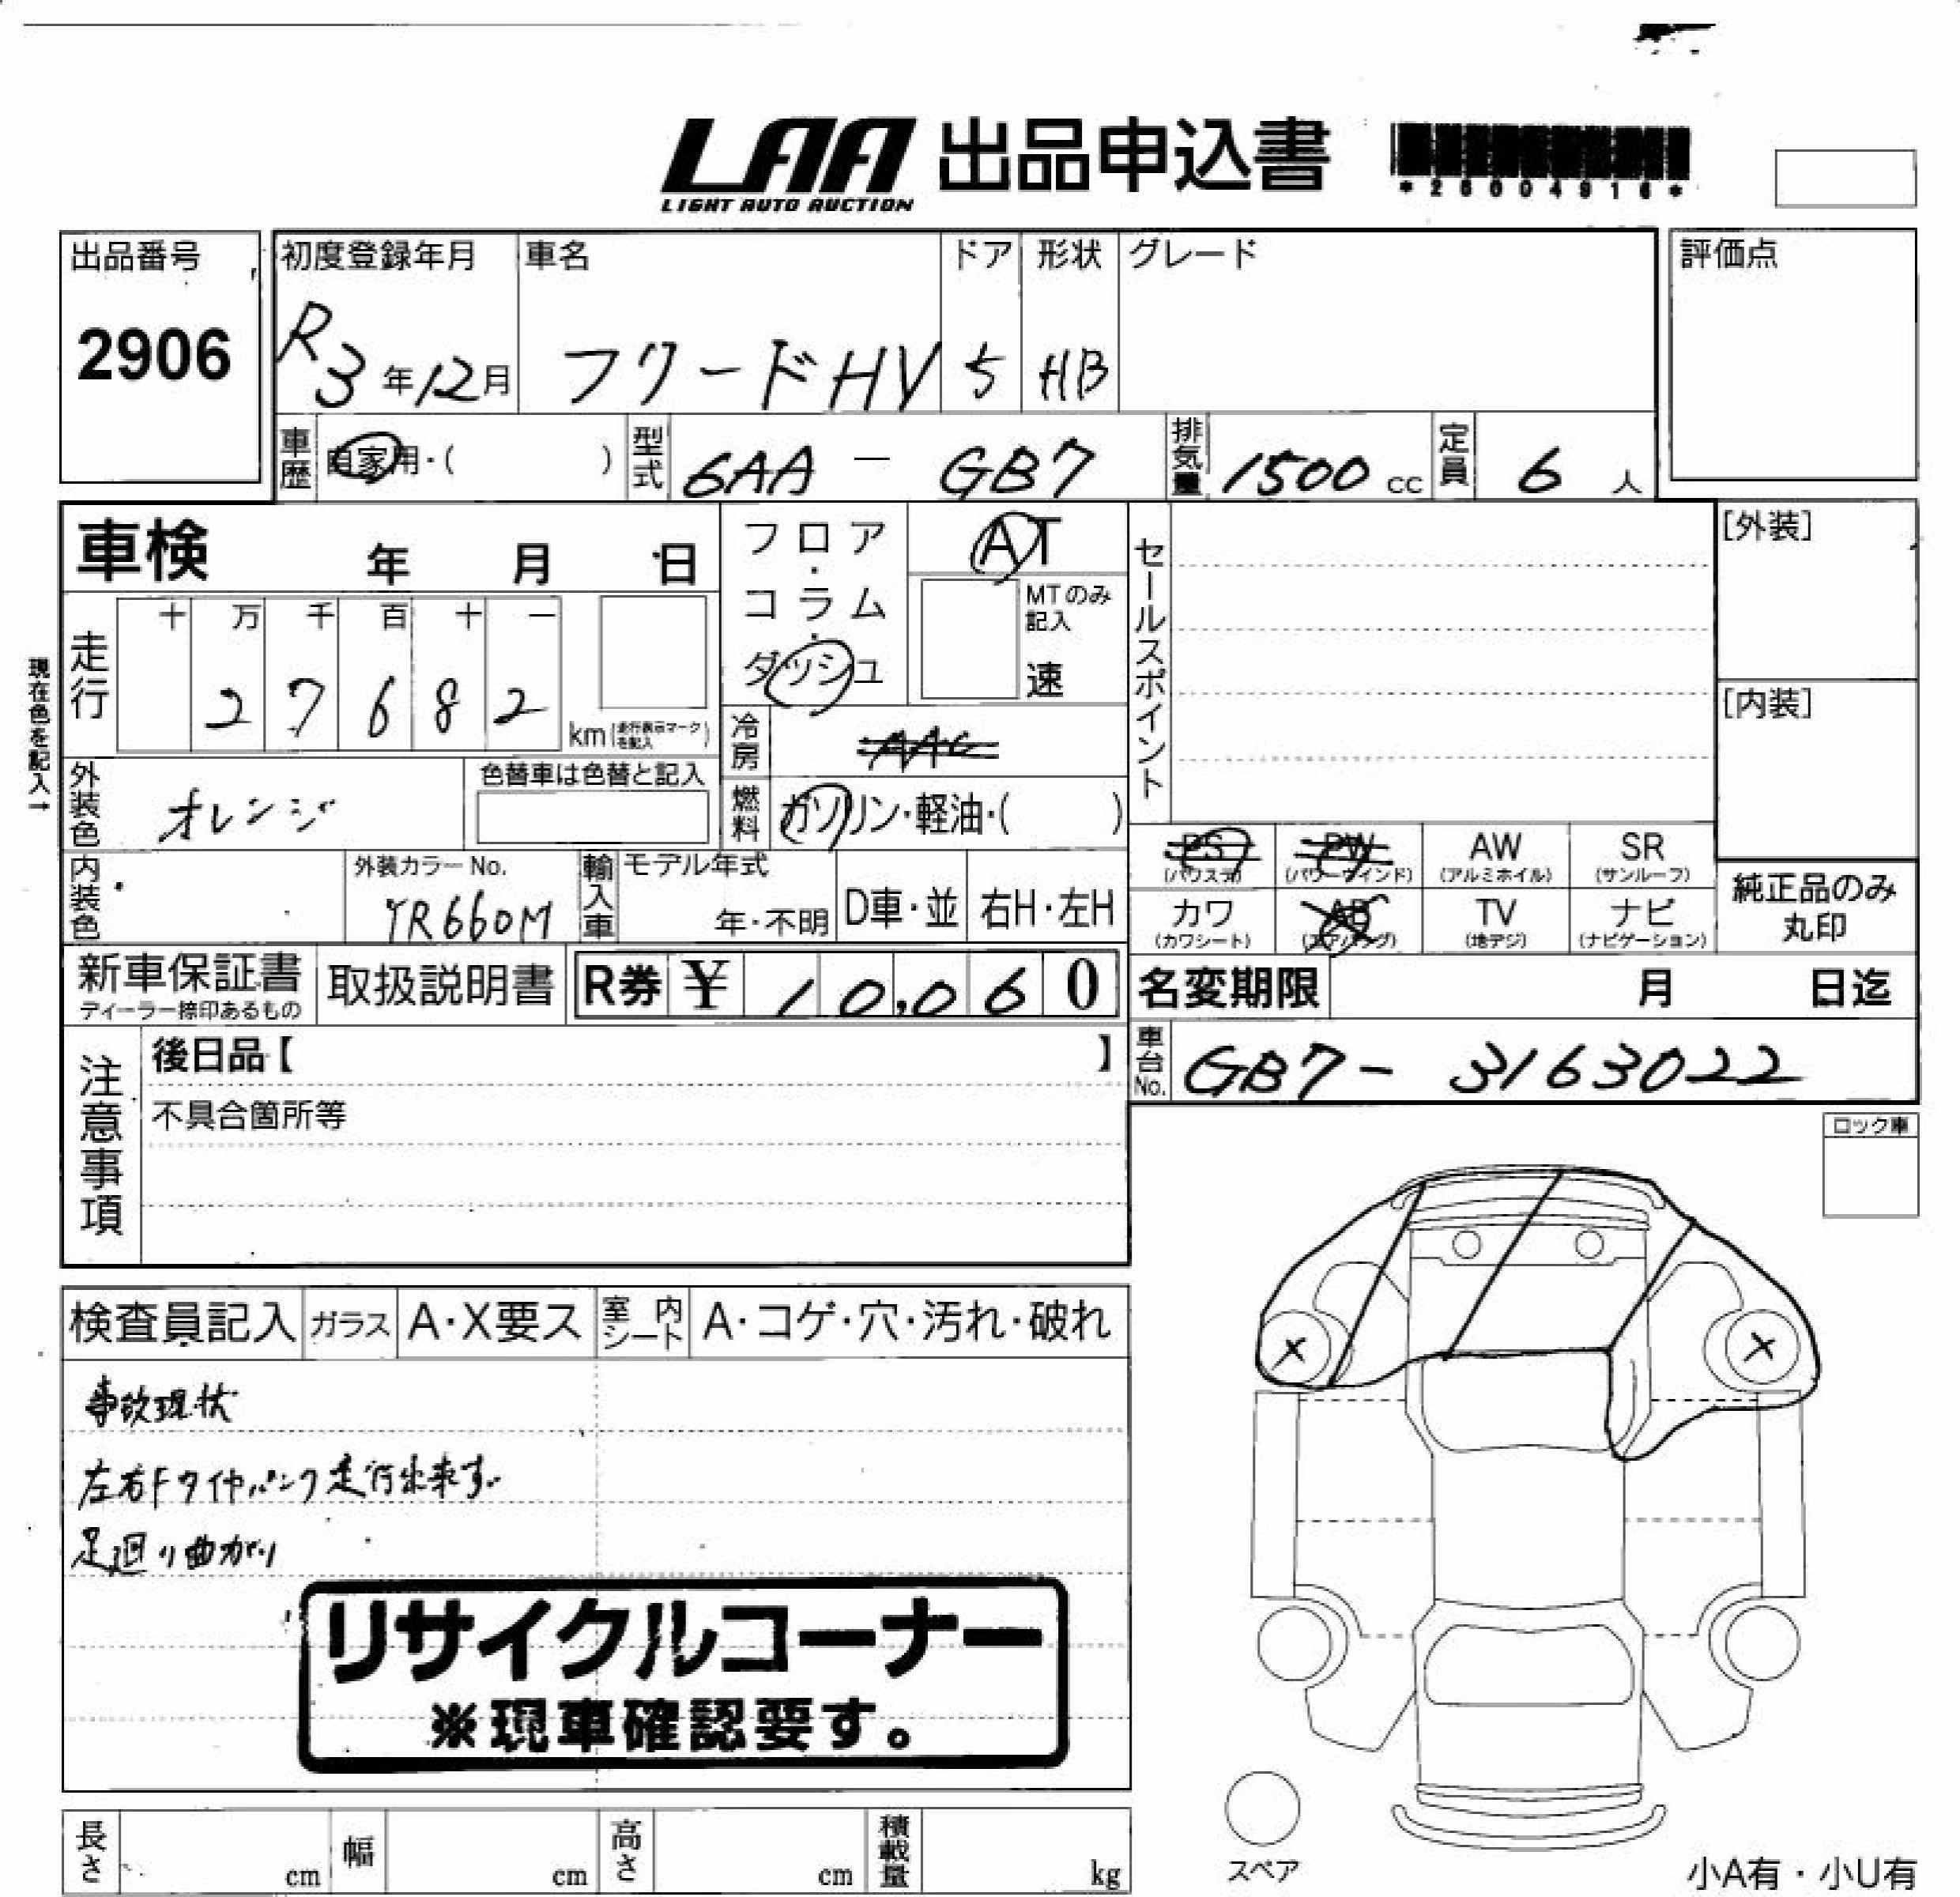 LAA 出品申込書
LIGHT AUTO AUCTION
*26004916*
出品番号
2906
初度登録年月 車名 ドア 形状 グレード
R3年12月 フリードHV 5 HB
評価点
車歴 自家用・( ) 型式 6AA - GB7 排気量 1500 cc 定員 6 人
車検 年 月 日
フロア・コラム・ダッシュ
AT
MTのみ記入
速
セールスポイント
[外装]
[内装]
現在色を記入→
走行 十 万 千 百 十 一
2 7 6 8 2
km (走行表示マークを記入)
冷房 AAC
燃料 ガソリン・軽油・( )
外装色 オレンジ
色替車は色替と記入
内装色
外装カラーNo.
YR660M
輸入車 モデル年式
年・不明 D車・並 右H・左H
PS PW AW SR
(パワステ) (パワーウインド) (アルミホイル) (サンルーフ)
カワ AB TV ナビ
(カワシート) (エアバッグ) (地デジ) (ナビゲーション)
純正品のみ
丸印
新車保証書
ディーラー捺印あるもの
取扱説明書
R券 ¥ 10,060
名変期限 月 日迄
車台No. GB7- 3163022
注意事項
後日品【 】
不具合箇所等
ロック車
検査員記入 ガラス A・X要ス 室内シート A・コゲ・穴・汚れ・破れ
事故現状
左右Fタイヤパンク走行出来ず。
足廻り曲がり
リサイクルコーナー
※現車確認要す。
× ×
スペア
長さ cm 幅 cm 高さ cm 積載量 kg
小A有・小U有